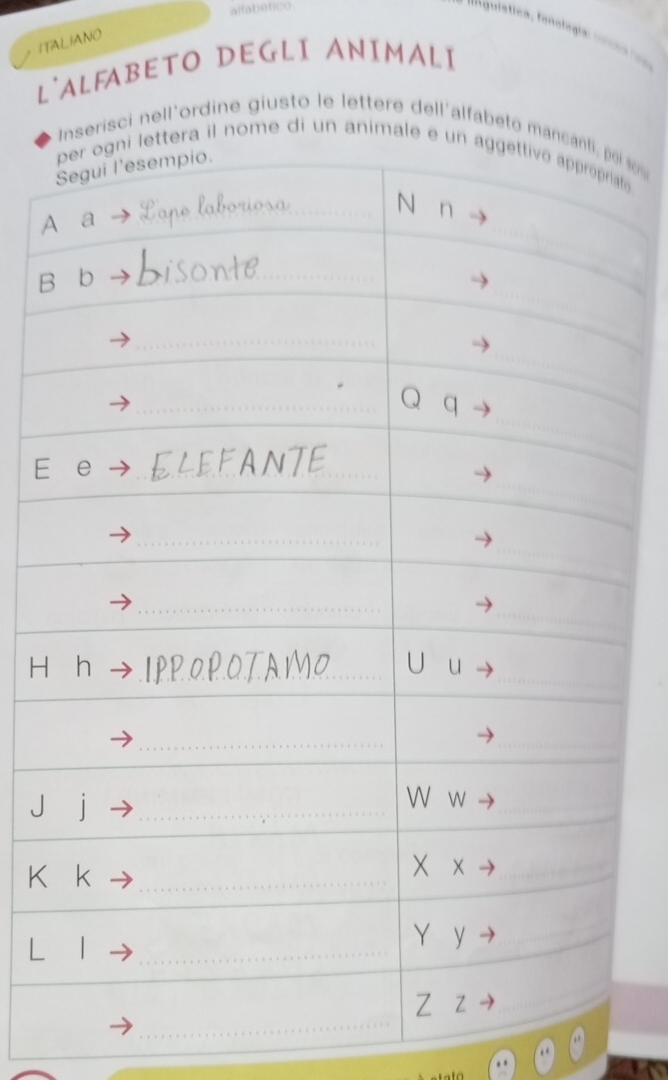 alfabetico
linguistica, fonologia:
ITALIANO
L'ALFABETO DEGLI ANIMALI
Inserisci nell'ordine giusto le lettere dell'alfabeto mancanti, poi
per ogni lettera il nome di un animale e un aggettivo appropriato.
Segui l'esempio.
A a → L'ape laboriosa
B b → bisonte
→
→
E e → ELEFANTE
→
→
H h → IPPOPOTAMO
→
J j →
K k →
L l →
→
N n →
→
→
Q q →
→
→
→
U u →
→
W w →
X x →
Y y →
Z z →